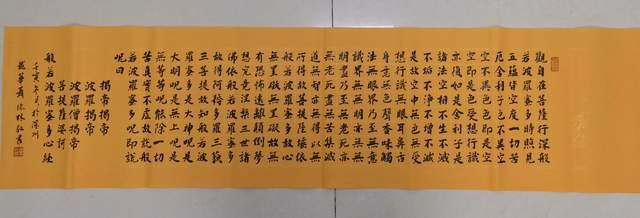 觀自在菩薩行深般
若波羅蜜多時照見
五蘊皆空度一切苦
厄舍利子色不異空
空不異色色即是空
空即是色受想行識
亦復如是舍利子是
諸法空相不生不滅
不垢不淨不增不減
是故空中無色無受
想行識無眼耳鼻舌
身意無色聲香味觸
法無眼界乃至無意
識界無無明亦無無
明盡乃至無老死亦
無老死盡無苦集滅
道無智亦無得以無
所得故菩提薩埵依
般若波羅蜜多故心
無罣礙無罣礙故無
有恐怖遠離顛倒夢
想究竟涅槃三世諸
佛依般若波羅蜜多
故得阿耨多羅三藐
三菩提故知般若波
羅蜜多是大神呪是
大明呪是無上呪是
無等等呪能除一切
苦真實不虛故說般
若波羅蜜多呪即說
呪曰
揭帝揭帝
波羅揭帝
波羅僧揭帝
菩提薩訶
般若波羅蜜多心經
壬寅年於深圳